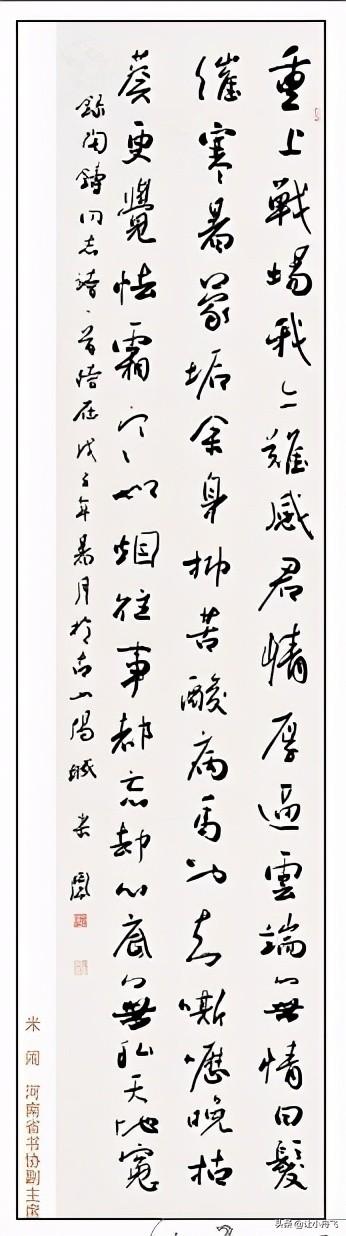 重上戰場我亦難感君情厚逼雲端無情白髮
催寒暑蒙垢余身抑苦酸病馬也知嘶嚦晚枯
葵更覺怯霜寒如烟往事都忘却心底無私天地寬
錄陶鑄同志詩一首時在戊子年暑月於古山陽城 米鬧
米闹 河南省书协副主席
头条 @让小舟飞